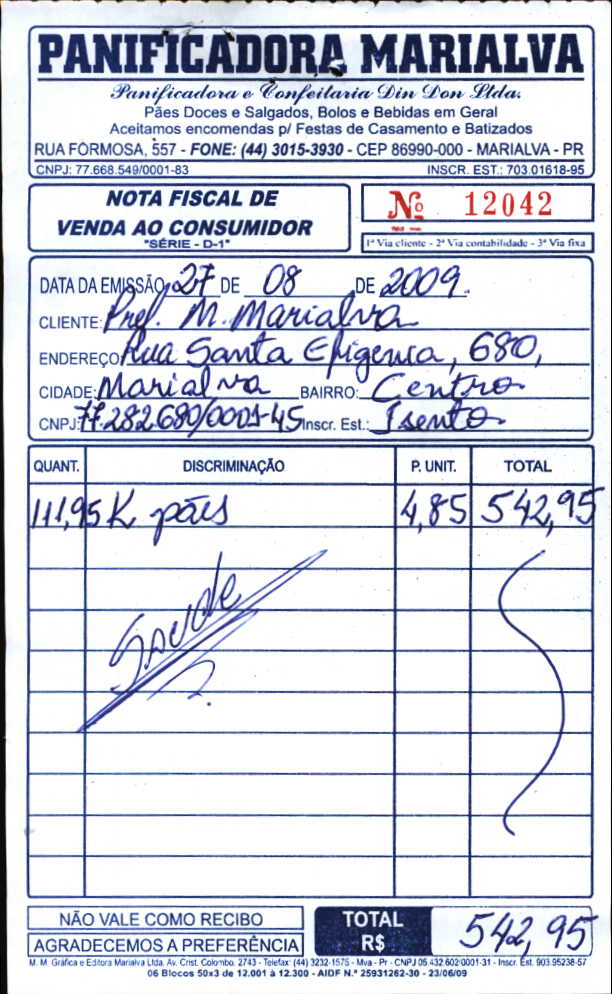 PANIFICADORA MARIALVA
Panificadora e Confeitaria Din Don Ltda.
Pães Doces e Salgados, Bolos e Bebidas em Geral
Aceitamos encomendas p/ Festas de Casamento e Batizados
RUA FORMOSA, 557 - FONE: (44) 3015-3930 - CEP 86990-000 - MARIALVA - PR
CNPJ: 77.668.549/0001-83 INSCR. EST.: 703.01618-95
NOTA FISCAL DE
VENDA AO CONSUMIDOR
"SÉRIE - D-1"
Nº 12042
1ª Via cliente - 2ª Via contabilidade - 3ª Via fixa
DATA DA EMISSÃO 27 DE 08 DE 2009
CLIENTE: Pref. M. Marialva
ENDEREÇO Rua Santa Efigenia, 680,
CIDADE: Marialva BAIRRO: Centro
CNPJ: 77.282.680/0001-45 Inscr. Est.: Isento
QUANT. DISCRIMINAÇÃO P. UNIT. TOTAL
111,95 K pães 4,85 542,95
Saude
NÃO VALE COMO RECIBO
AGRADECEMOS A PREFERÊNCIA
TOTAL R$ 542,95
M. M. Gráfica e Editora Marialva Ltda. Av. Crist. Colombo, 2743 - Telefax: (44) 3232-1575 - Mva - Pr - CNPJ 05.432.602/0001-31 - Inscr. Est. 903.95238-57
06 Blocos 50x3 de 12.001 à 12.300 - AIDF N.º 25931262-30 - 23/06/09